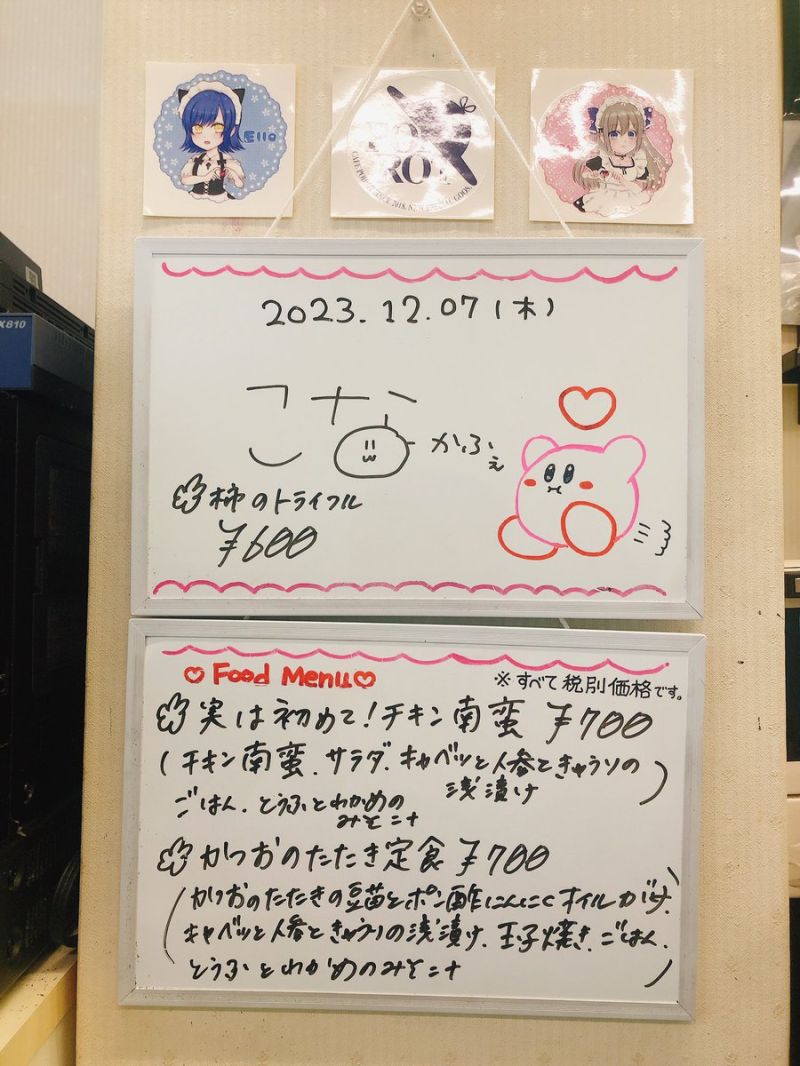 Ello
X810
2023.12.07(木)
こな
かふぇ
柿のトライフル
¥600
Food Menu
※すべて税別価格です。
実は初めて!チキン南蛮 ¥700
(チキン南蛮、サラダ、キャベツと人参ときゅうりの
浅漬け
ごはん、とうふとわかめの
みそ汁)
かつおのたたき定食 ¥700
(かつおのたたきの豆苗とポン酢にんにくオイルがけ、
キャベツと人参ときゅうりの浅漬け、玉子焼き、ごはん、
とうふとわかめのみそ汁)